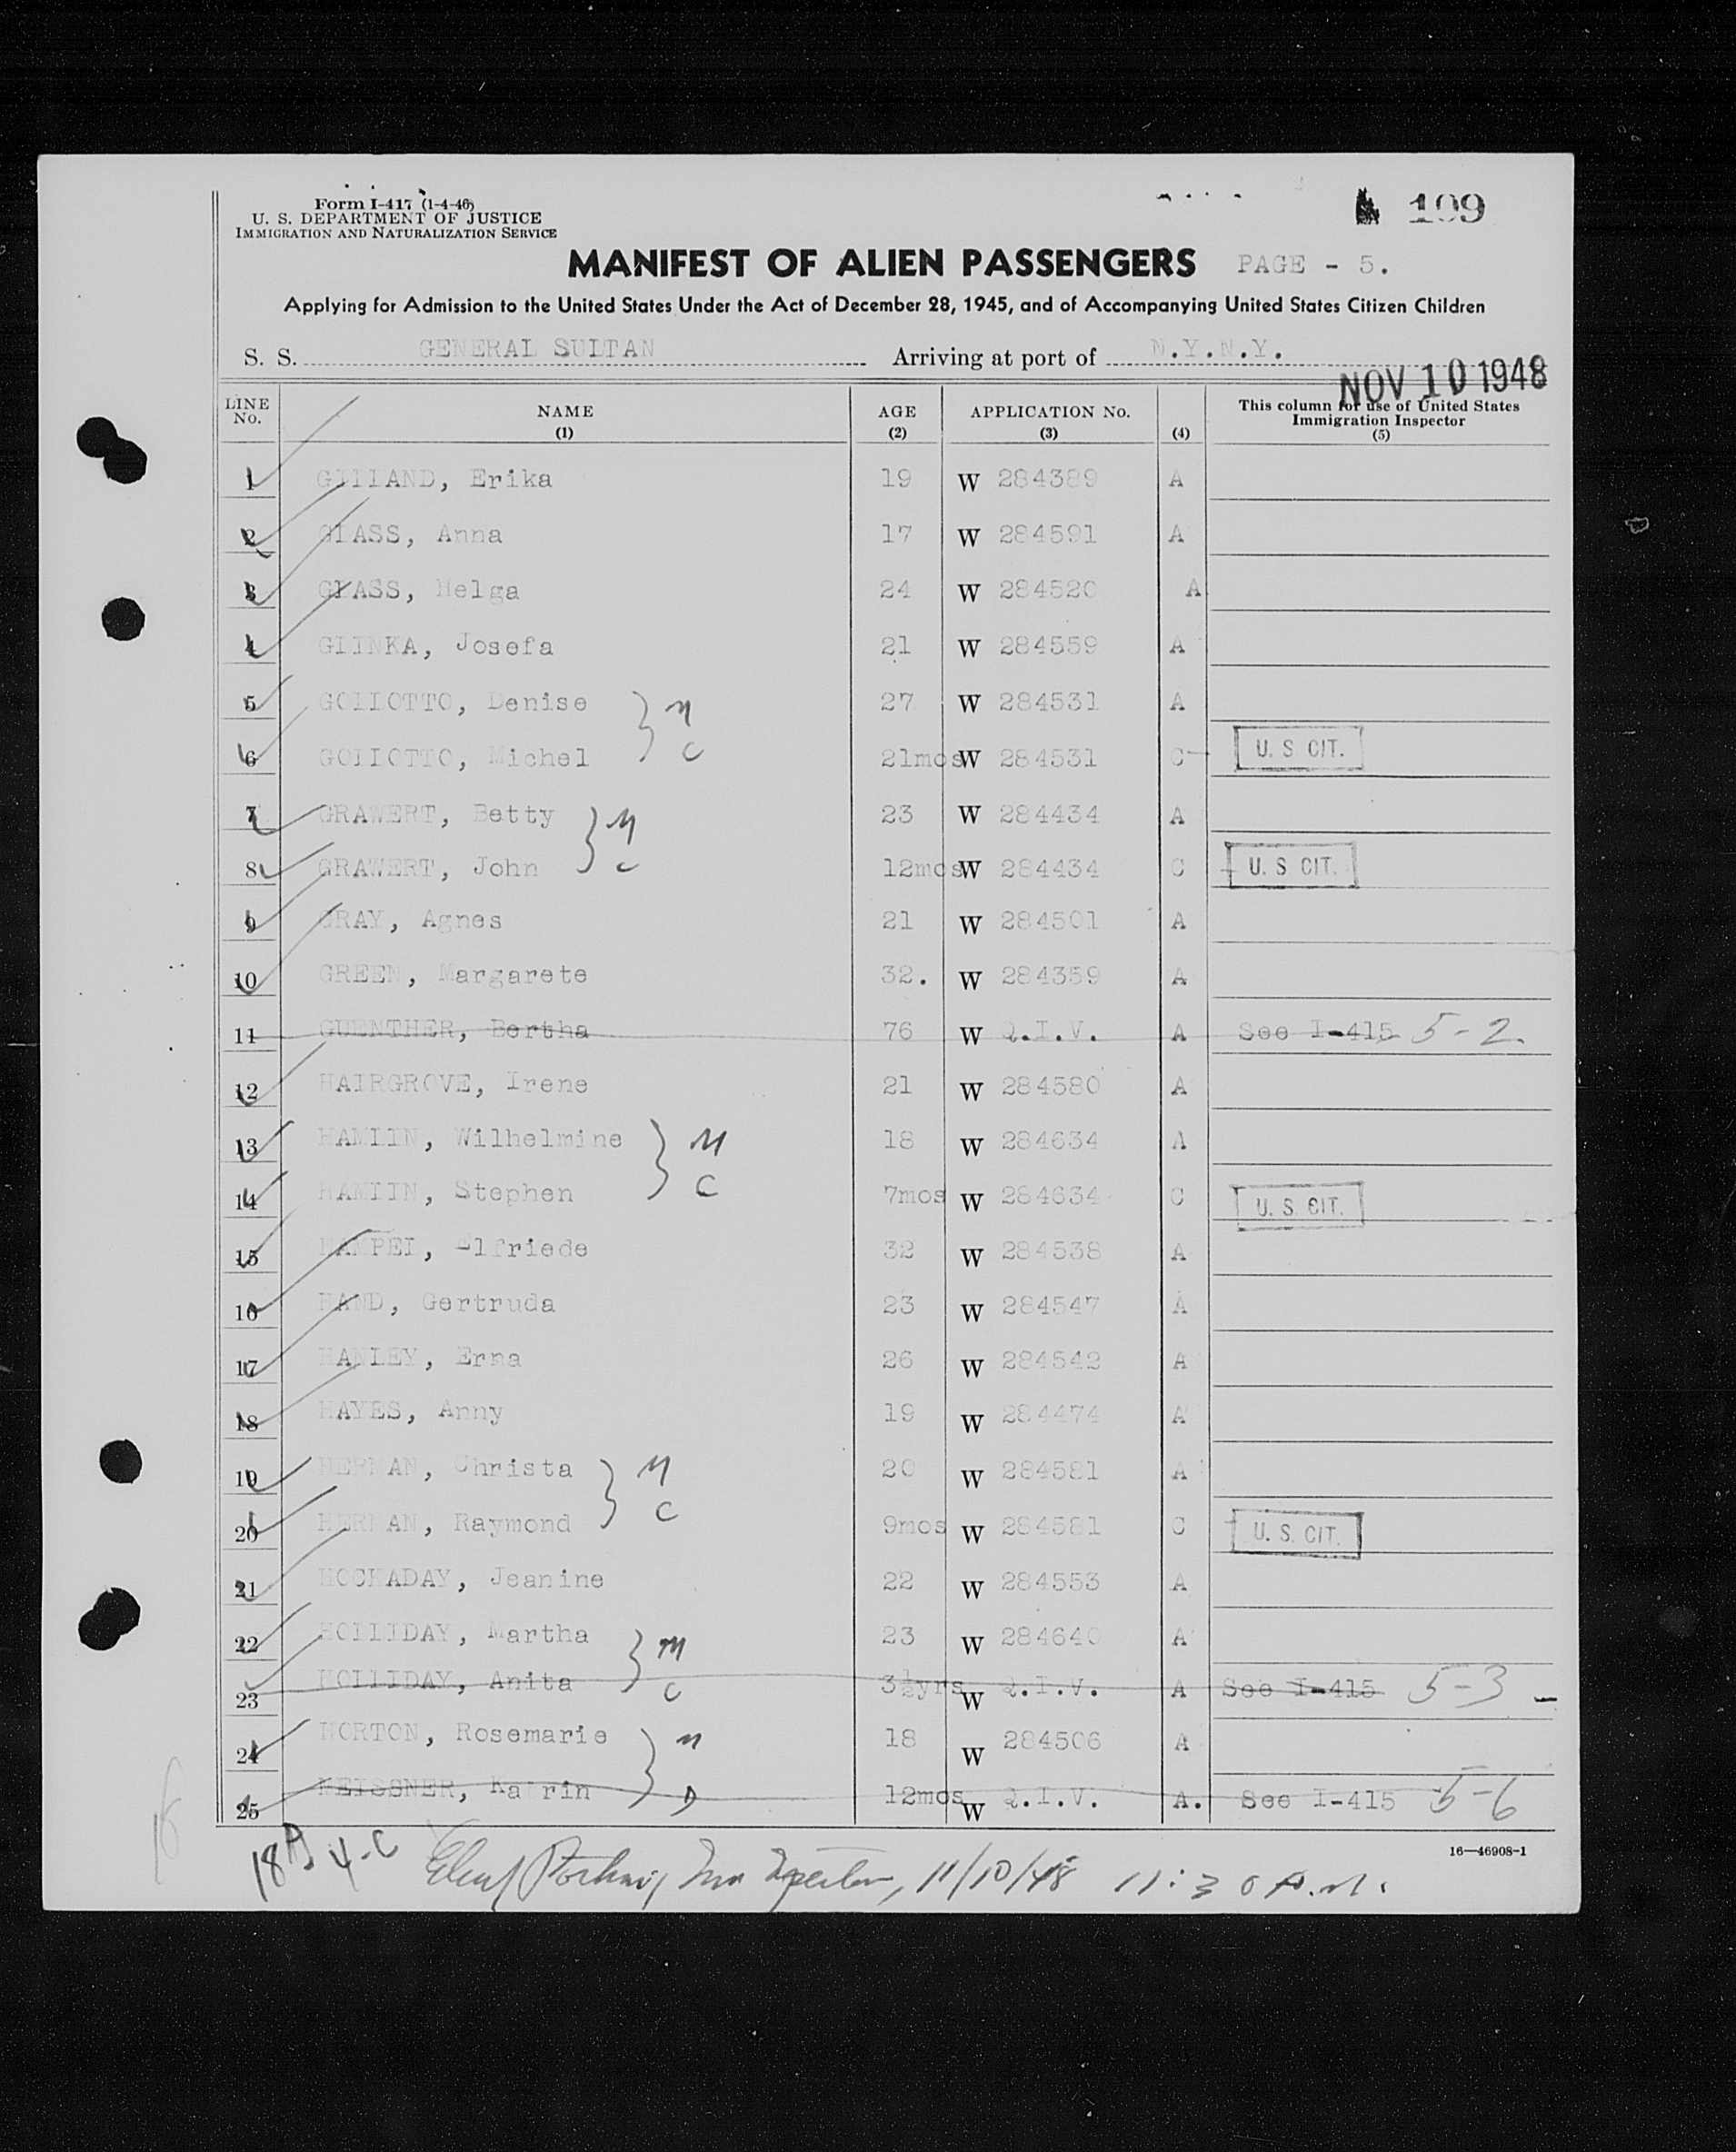 Form I-417 (1-4-46)
U. S. DEPARTMENT OF JUSTICE
IMMIGRATION AND NATURALIZATION SERVICE
109
MANIFEST OF ALIEN PASSENGERS PAGE - 5.
Applying for Admission to the United States Under the Act of December 28, 1945, and of Accompanying United States Citizen Children
S. S. GENERAL SULTAN Arriving at port of N.Y.N.Y.
NOV 10 1948
LINE No. NAME (1) AGE (2) APPLICATION No. (3) (4) This column for use of United States Immigration Inspector (5)
1 GILLAND, Erika 19 W 284389 A
2 GLASS, Anna 17 W 284591 A
3 GLASS, Helga 24 W 284520 A
4 GLINKA, Josefa 21 W 284559 A
5 GOLLOTTO, Denise M 27 W 284531 A
6 GOLLOTTO, Michel C 21mos W 284531 C U. S. CIT.
7 GRAWERT, Betty M 23 W 284434 A
8 GRAWERT, John C 12mos W 284434 C U. S. CIT.
9 GRAY, Agnes 21 W 284501 A
10 GREEN, Margarete 32. W 284359 A
11 GUENTHER, Bertha 76 W Q.I.V. A See I-415 5-2.
12 HAIRGROVE, Irene 21 W 284580 A
13 HAMLIN, Wilhelmine M 18 W 284634 A
14 HAMLIN, Stephen C 7mos W 284634 C U. S. CIT.
15 HAMPEL, Elfriede 32 W 284538 A
16 HAND, Gertruda 23 W 284547 A
17 HANLEY, Erna 26 W 284542 A
18 HAYES, Anny 19 W 284474 A
19 HERMAN, Christa M 20 W 284581 A
20 HERMAN, Raymond C 9mos W 284581 C U. S. CIT.
21 HOCKADAY, Jeanine 22 W 284553 A
22 HOLLIDAY, Martha M 23 W 284640 A
23 HOLLIDAY, Anita C 3½yrs W Q.I.V. A See I-415 5-3
24 HORTON, Rosemarie M 18 W 284506 A
25 MEISSNER, Katrin D 12mos W Q.I.V. A. See I-415 5-6
16—46908-1
18 A 4-C 11/10/48 11:30 A.M.